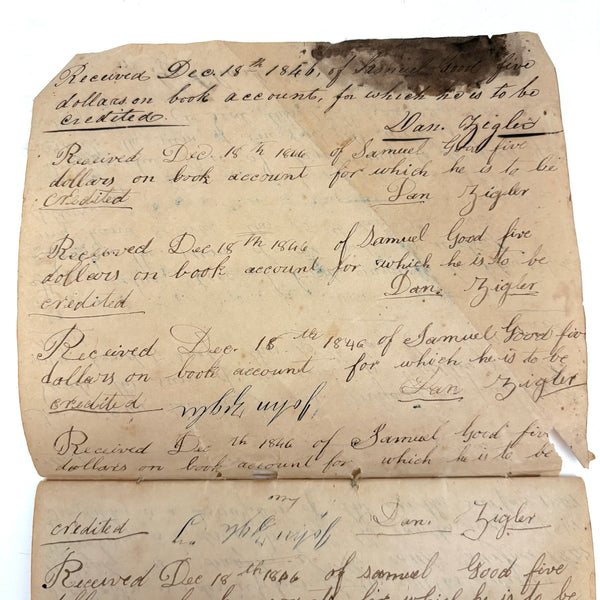 Received Dec. 18th 1846, of Samuel Good five
dollars on book account, for which he is to be
credited. Dan. Zigler
Received Dec. 18th 1846 of Samuel Good five
dollars on book account for which he is to be
credited Dan Zigler
Received Dec 18th 1846 of Samuel Good five
dollars on book account, for which he is to be
credited Dan. Zigler
Received Dec. 18th 1846 of Samuel Good five
dollars on book account for which he is to be
credited Dan Zigler
John Zigler
Received Dec th 1846 of Samuel Good five
dollars on book account for which he is to be
credited Dan. Zigler
John Zigler
Received Dec 18th 1846 of Samuel Good five